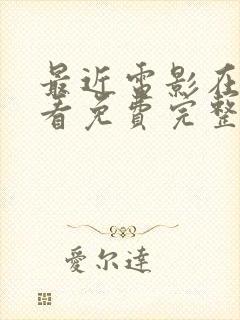 最近雷影在
看免费完整
愛尔達